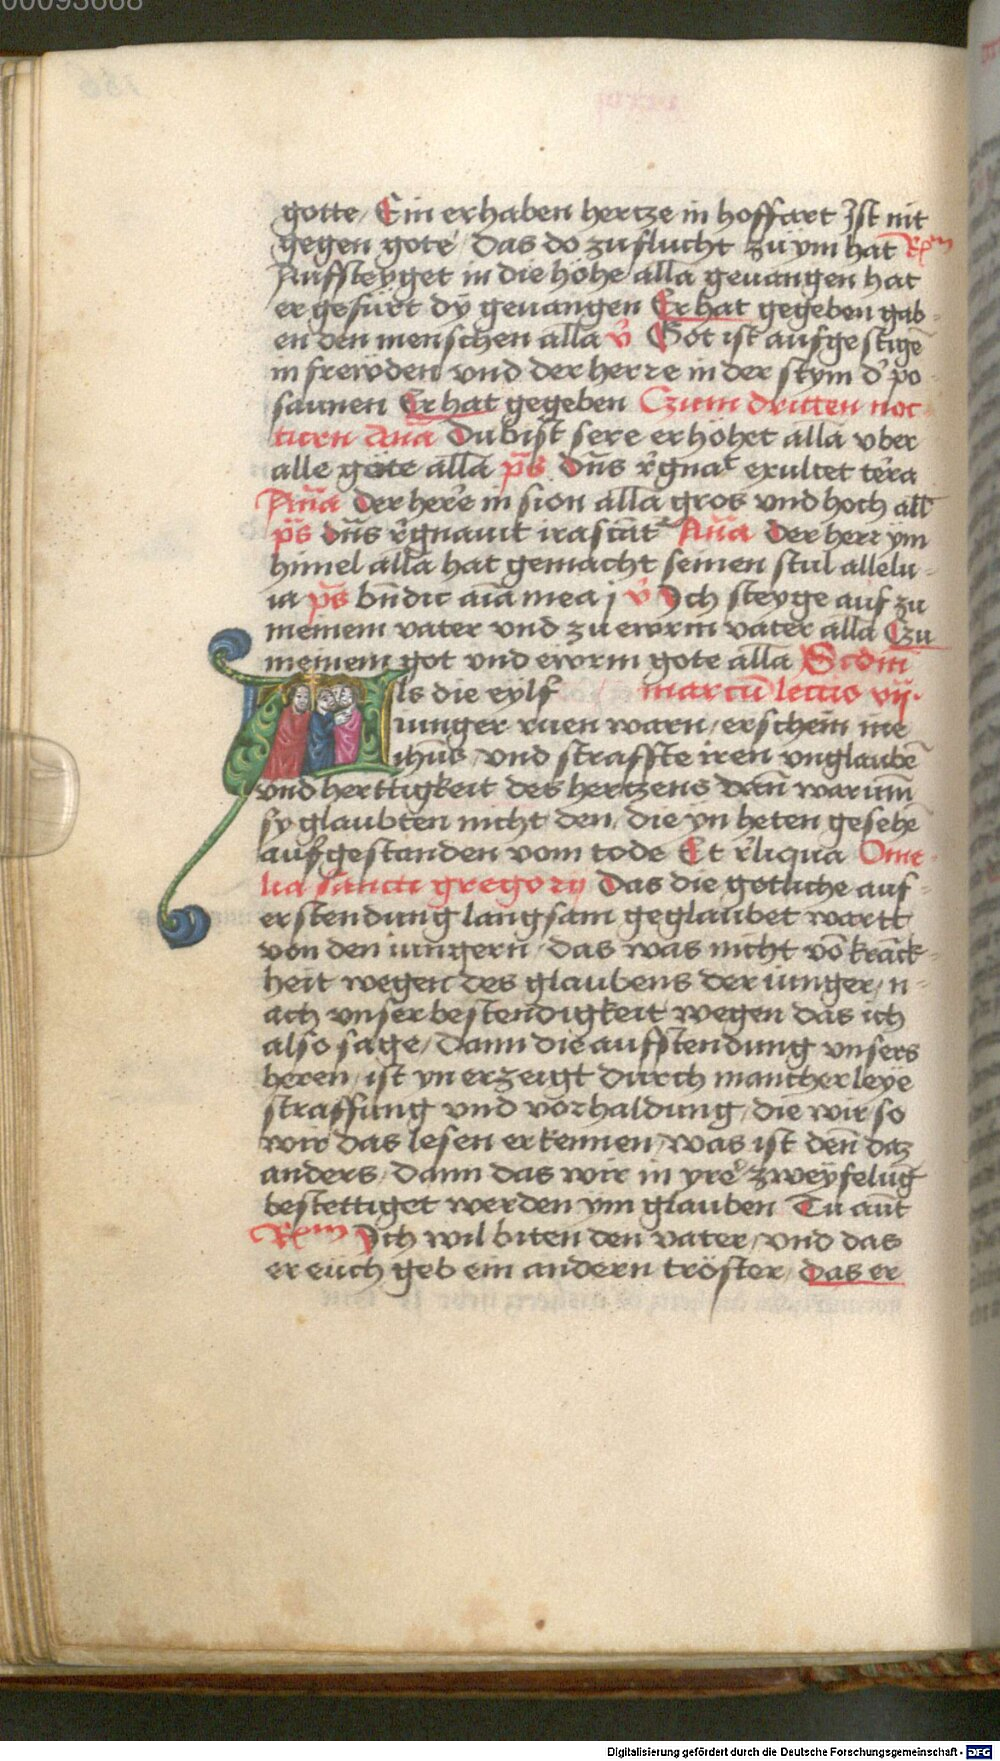 00093668
gotte / Ein erhaben hertze in hoffart Ist nit
gegen gote / das do zuflucht zu ym hat R̄m
Auffsteyget in die höhe alla geuangen hat
er gefürt dy geuangen Er hat gegeben gab-
en den menschen alla v̓ Got ist aufgestigē
in frewden und der herre in der stym d̓ po
saunen Er hat gegeben Czum dritten noc
turn Ana̅ Du bist sere erhöhet alla vber
alle göte alla ps̄ dn̄s r̓gnat exultet ter̓a
An̄a der her̓e in sion alla gros vnd hoch all̄
ps̄ dn̄s r̓gnauit irascāt̾ An̄a der herr ym
himel alla hat gemacht seinen stul allelu-
ia ps̄ bn̄dic aīa mea j v̓ Ich steyge auf zu
meinem vater vnd zu ewrm vater alla Czu
meinem got vnd ewrm gote alla Scdm̄
Als die eylf marcū lectio vij.
iunger ruen warn / erschein ine
ihūs / vnd straffte iren vnglaubē
vnd herttigkeit des hertzens dan̄ warum̄
sy glaubten nicht den / die yn heten gesehē
aufgestanden vom tode Et r̓liqua Ome-
lia sancti gregorij Das die gotliche auf-
erstendung langsam geglaubet wartt
von den iungern / das was nicht vō kranck-
heit wegen des glaubens der iunger / n-
ach vnser bestendigkeit wegen das ich
also sage / Dann die aufstendung vnsers
heren / ist yn erzeigt durch mancherleye
straffung vnd vorhaldung / die wir so
wir das lesen erkennen / was ist den̄ daz
anders / dann das wir in yre̓ zweyfelūg
bestettiget werden ym glauben Tu aūt
R̄m Ich wil biten den vater / vnd das
er euch geb ein andern tröster / das er
Digitalisierung gefördert durch die Deutsche Forschungsgemeinschaft - DFG